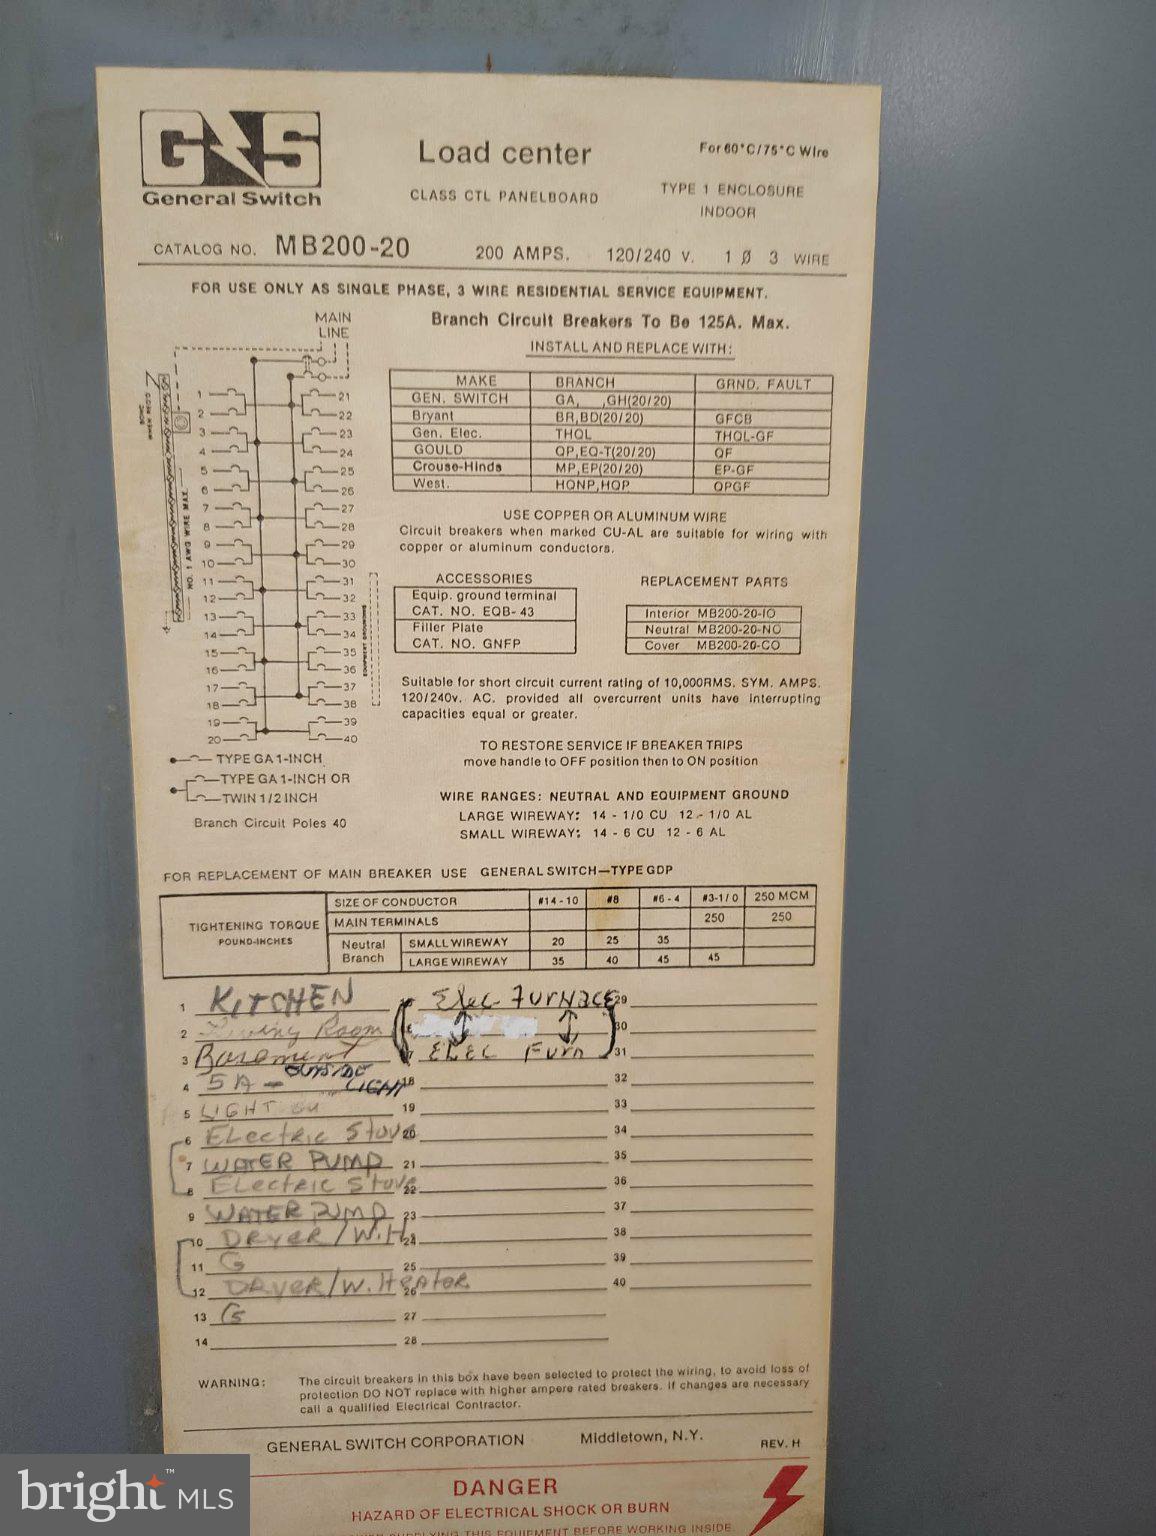 GS
General Switch
Load center
CLASS CTL PANELBOARD
For 60°C/75°C Wire
TYPE 1 ENCLOSURE
INDOOR
CATALOG NO. MB200-20 200 AMPS. 120/240 V. 1 Ø 3 WIRE
FOR USE ONLY AS SINGLE PHASE, 3 WIRE RESIDENTIAL SERVICE EQUIPMENT.
MAIN
LINE
BOND
WHEN REQ'D
NO. 1 AWG WIRE MAX.
1 21
2 22
3 23
4 24
5 25
6 26
7 27
8 28
9 29
10 30
11 31
12 32
13 33
14 34
15 35
16 36
17 37
18 38
19 39
20 40
EQUIPMENT GROUNDING
TYPE GA 1-INCH
TYPE GA 1-INCH OR
TWIN 1/2 INCH
Branch Circuit Poles 40
Branch Circuit Breakers To Be 125A. Max.
INSTALL AND REPLACE WITH:
MAKE BRANCH GRND. FAULT
GEN. SWITCH GA, ,GH(20/20)
Bryant BR,BD(20/20) GFCB
Gen. Elec. THQL THQL-GF
GOULD QP,EQ-T(20/20) QF
Crouse-Hinds MP,EP(20/20) EP-GF
West. HQNP,HQP QPGF
USE COPPER OR ALUMINUM WIRE
Circuit breakers when marked CU-AL are suitable for wiring with
copper or aluminum conductors.
ACCESSORIES
Equip. ground terminal
CAT. NO. EQB-43
Filler Plate
CAT. NO. GNFP
REPLACEMENT PARTS
Interior MB200-20-IO
Neutral MB200-20-NO
Cover MB200-20-CO
Suitable for short circuit current rating of 10,000RMS. SYM. AMPS.
120/240v. AC. provided all overcurrent units have interrupting
capacities equal or greater.
TO RESTORE SERVICE IF BREAKER TRIPS
move handle to OFF position then to ON position
WIRE RANGES: NEUTRAL AND EQUIPMENT GROUND
LARGE WIREWAY: 14 - 1/0 CU 12 - 1/0 AL
SMALL WIREWAY: 14 - 6 CU 12 - 6 AL
FOR REPLACEMENT OF MAIN BREAKER USE GENERAL SWITCH—TYPE GDP
TIGHTENING TORQUE
POUND-INCHES
SIZE OF CONDUCTOR #14-10 #8 #6-4 #3-1/0 250 MCM
MAIN TERMINALS 250 250
Neutral
Branch
SMALL WIREWAY 20 25 35
LARGE WIREWAY 35 40 45 45
1 KITCHEN
2 Living Room
3 Basement
4 5A - OUTSIDE LIGHT
5 LIGHT
6 Electric Stove
7 WATER PUMP
8 Electric Stove
9 WATER PUMP
10 DRYER/W.H.
11 G
12 DRYER/W. Heater
13 G
14
Elec Furnace
ELEC Furn
18
19
20
21
22
23
24
25
26
27
28
29
30
31
32
33
34
35
36
37
38
39
40
WARNING: The circuit breakers in this box have been selected to protect the wiring, to avoid loss of
protection DO NOT replace with higher ampere rated breakers. If changes are necessary
call a qualified Electrical Contractor.
GENERAL SWITCH CORPORATION Middletown, N.Y. REV. H
DANGER
HAZARD OF ELECTRICAL SHOCK OR BURN
SUPPLYING THIS EQUIPMENT BEFORE WORKING INSIDE
bright™ MLS